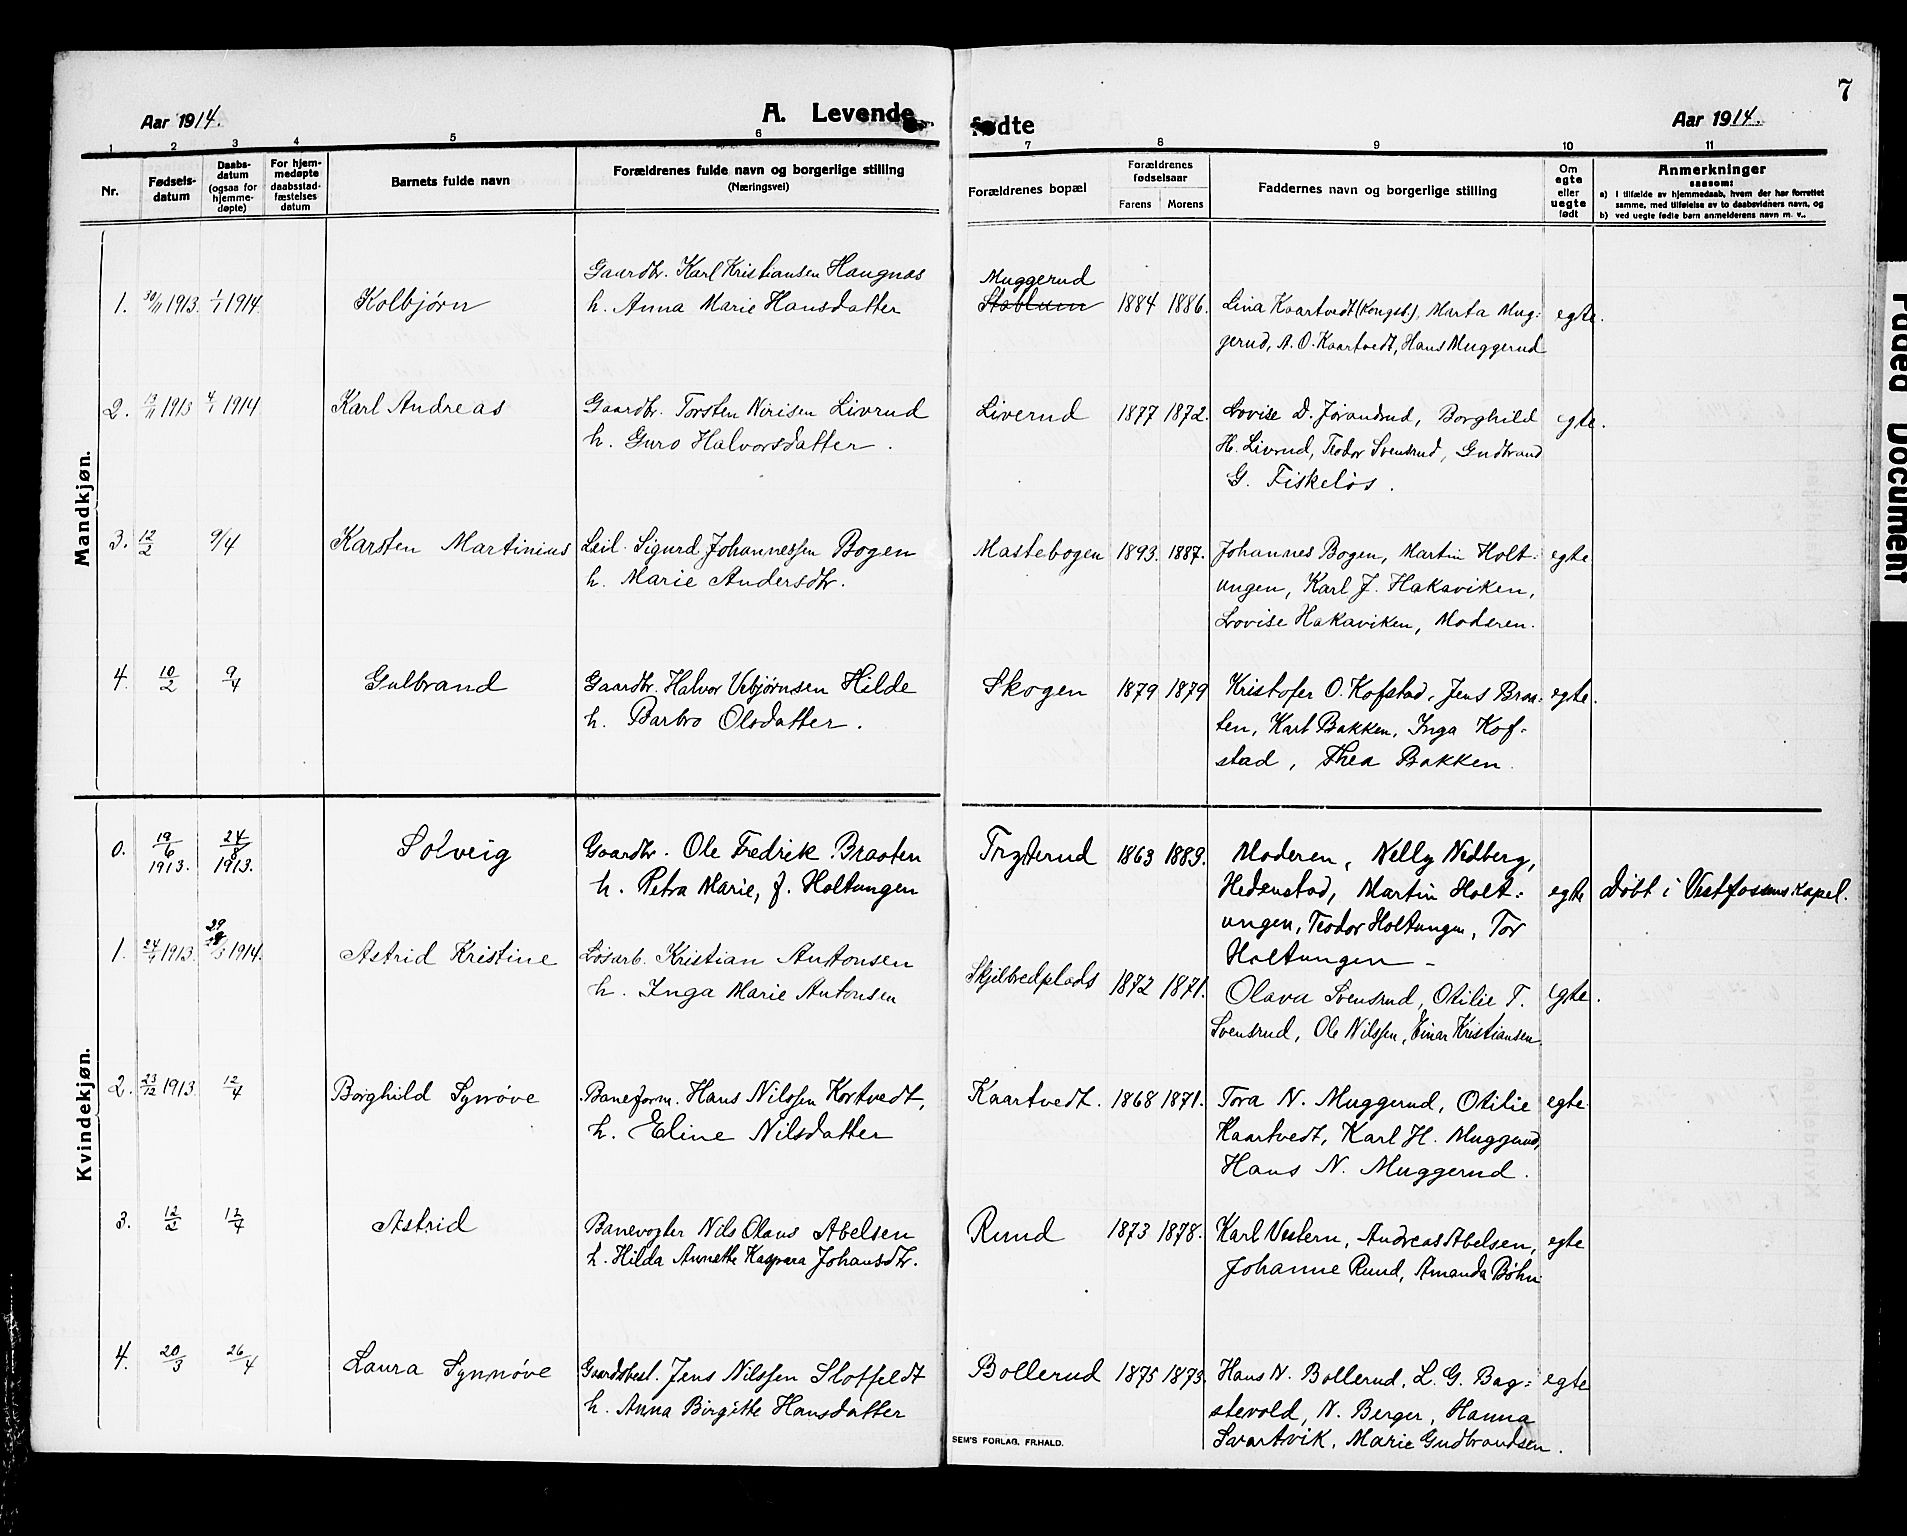 7
Aar 1914.
A. Levende
fødte
Aar 1914.
1 2 3 4 5 6 7 8 9 10 11
Nr.
Fødsels-
datum
Daabs-
datum
(ogsaa for
hjemme-
døpte)
For hjem-
medøpte
daabsstad-
fæstelses
datum
Barnets fulde navn
Forældrenes fulde navn og borgerlige stilling
(Næringsvei)
Forældrenes bopæl
Forældrenes
fødselsaar
Farens Morens
Faddernes navn og borgerlige stilling
Om
egte
eller
uegte
født
Anmerkninger
saasom:
a) I tilfælde av hjemmedaab, hvem der har forrettet
samme, med tilføielse av to daabsvidners navn, og
b) ved uegte fødte børn anmelderens navn m. v..
Mandkjøn.
1. 30/11 1913. 1/1 1914. Kolbjørn
Gaardbr. Karl Kristiansen Haugnæs
h. Anna Marie Hansdatter
Muggerud
1884 1886.
Lina Kaartvedt (Kongsb.), Marta Mug:
gerud, A. O. Kaartvedt, Hans Muggerud
egte.
2. 13/11 1913 4/1 1914 Karl Andreas
Gaardbr. Torsten Nirisen Livrud
h. Guro Halvorsdatter.
Liverud 1877 1872.
Lovise D. Jørandrud, Borghild
H. Livrud, Teodor Svensrud, Gudbrand
G. Fiskeløs.
egte.
3. 12/2 9/4 Karsten Martinius
Leil. Sigurd Johannessen Bogen
h. Marie Andersdtr.
Mastebogen 1893. 1887.
Johannes Bogen, Martin Holt:
ungen, Karl J. Hakaviken,
Lovise Hakaviken, Moderen.
egte
4. 10/2 9/4 Gulbrand
Gaardbr. Halvor Vebjørnsen Hilde
h. Barbro Olsdatter.
Skogen 1879 1879
Kristofer O. Kofstad, Jens Braa:
ten, Karl Bakken, Inga Kof-
stad, Thea Bakken.
egte.
Kvindekjøn.
0. 19/6 1913. 24/8 1913. Solveig
Gaardbr. Ole Fredrik Braaten
h. Petra Marie, f. Holtungen
Tryterud 1863 1889.
Moderen, Nelly Nedberg,
Hedenstad, Martin Holt:
ungen, Teodor Holtungen, Tor
Holtungen
egte
Døbt i Vestfossens kapel.
1. 1913. 29/3 1914. Astrid Kristine
Løsarb. Kristian Antonsen
h. Inga Marie Antonsen
Skjelbredplads 1872 1871.
Olava Svensrud, Otilie T.
Svensrud, Ole Nilssen, Einar Kristiansen
egte.
2. 23/12 1913. 12/4 Borghild Synnøve
Baneform. Hans Nilssen Kortvedt,
h. Eline Nilsdatter
Kaartvedt. 1868 1871.
Tora N. Muggerud, Otilie
Kaartvedt, Karl H. Muggerud,
Hans N. Muggerud.
egte.
3. 12/2 12/4 Astrid
Banevogter Nils Olaus Abelsen
h. Hilda Annette Kaspara Johansdtr.
Rund 1873 1878.
Karl Vestern, Andreas Abelsen,
Johanne Rund, Amanda Bøhn
egte
4. 20/3 26/4 Laura Synnøve
Gaardsbest. Jens Nilssen Slotfeldt
h. Anna Birgitte Hansdatter
Bollerud 1875 1873.
Hans N. Bollerud, L. G. Bag:
stevold, N. Berger, Hanna
Svartvik, Marie Gudbrandsen.
egte
SEM'S FORLAG, FR.HALD.
Faded Document